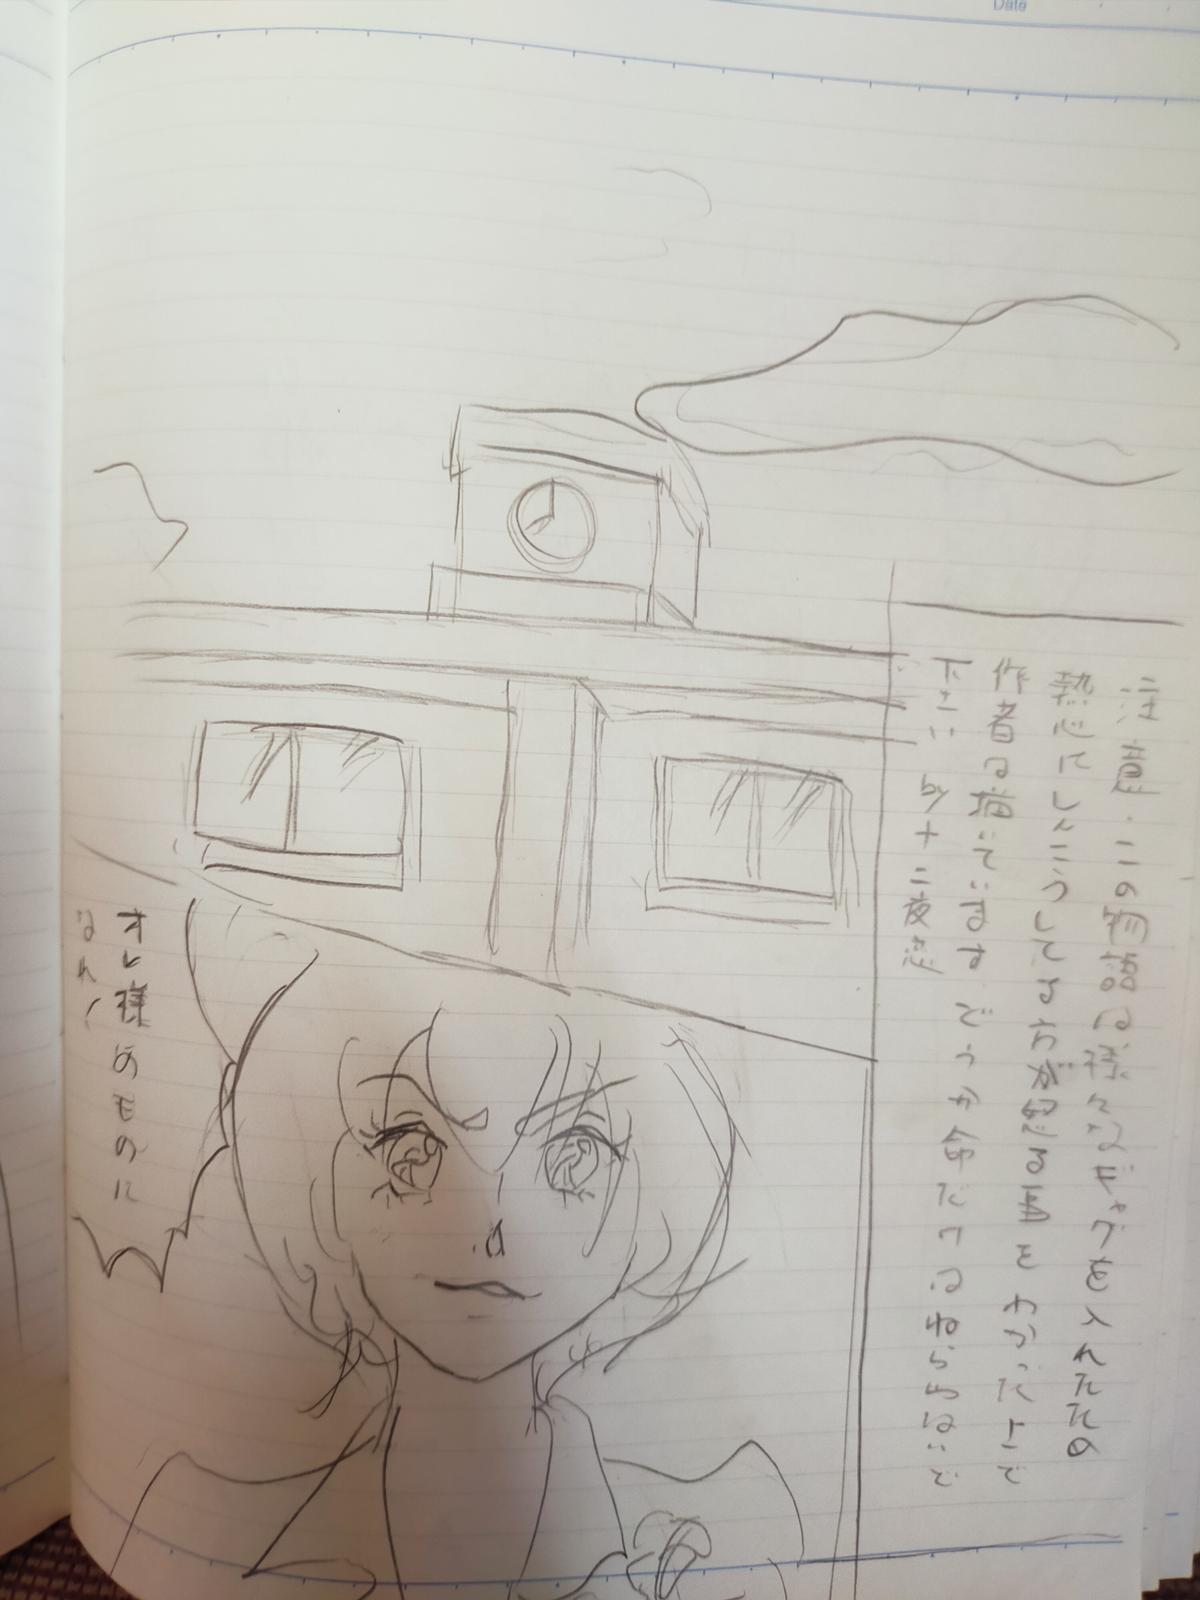 Date
注意・この物語は様々なギャグを入れたため
熱心にしんこうしてる方が怒る事をわかった上で
作者は描いています どうか命だけはねらわないで
下さい by 十二夜恋
オレ様のものに
なれ!